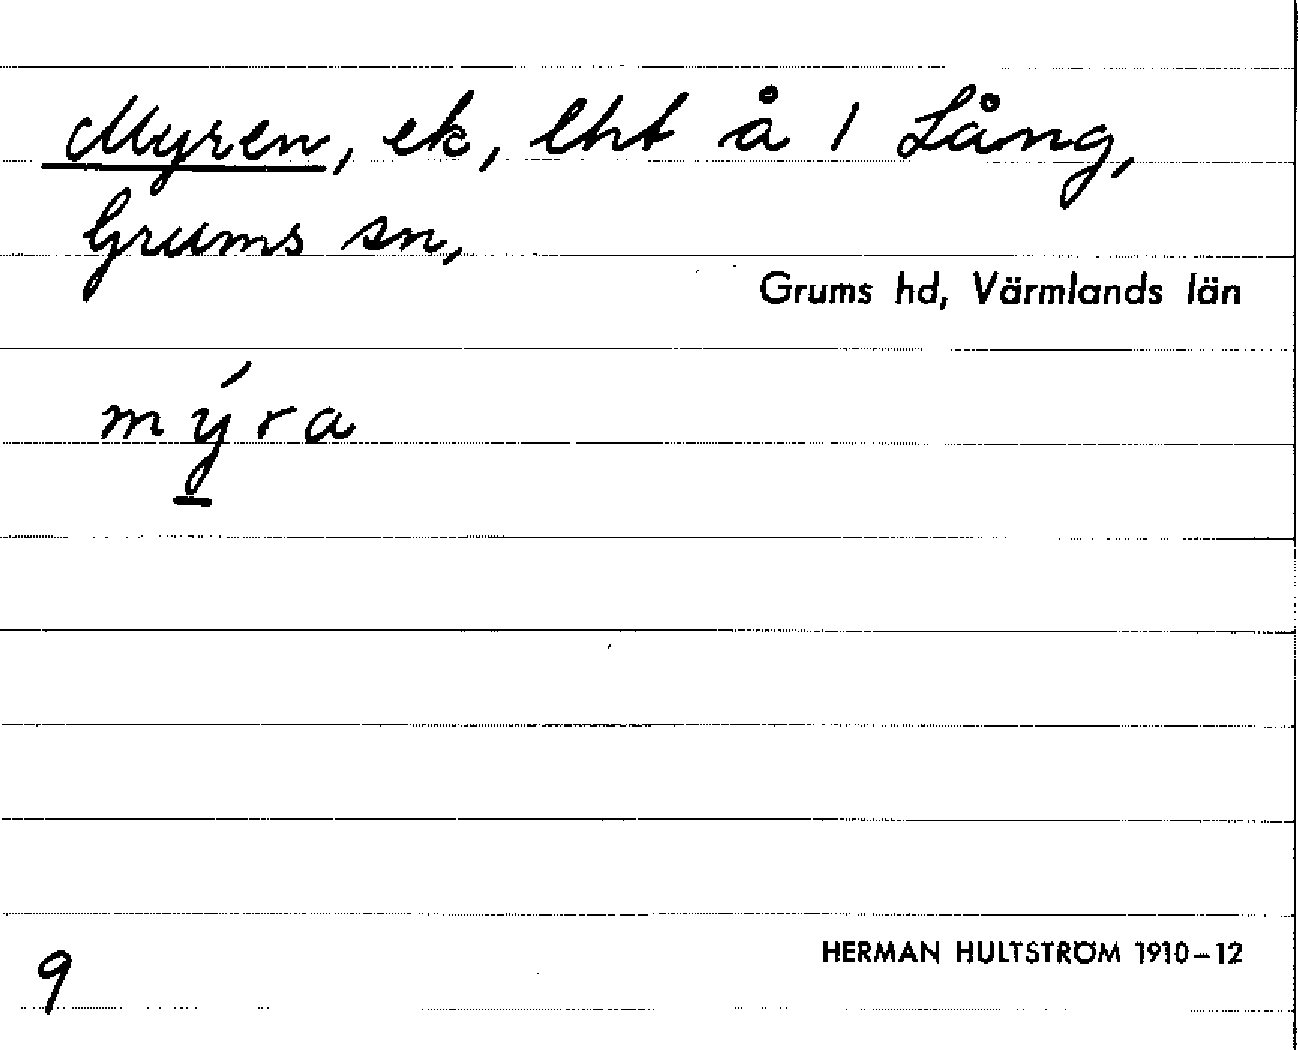 Myren, ek, lht å 1 Lång,
Grums sn,
Grums hd, Värmlands län
mýra
9
HERMAN HULTSTRÖM 1910–12